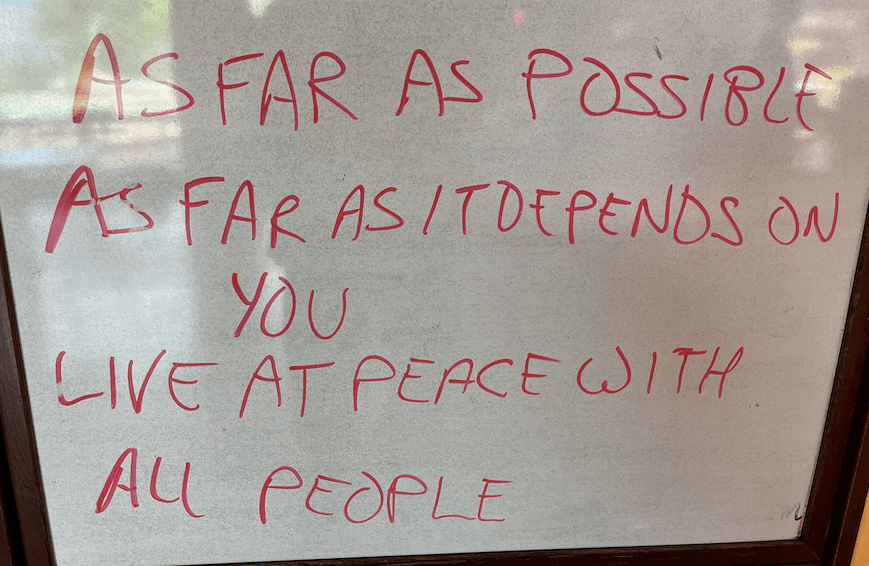 AS FAR AS POSSIBLE
AS FAR AS IT DEPENDS ON
YOU
LIVE AT PEACE WITH
ALL PEOPLE